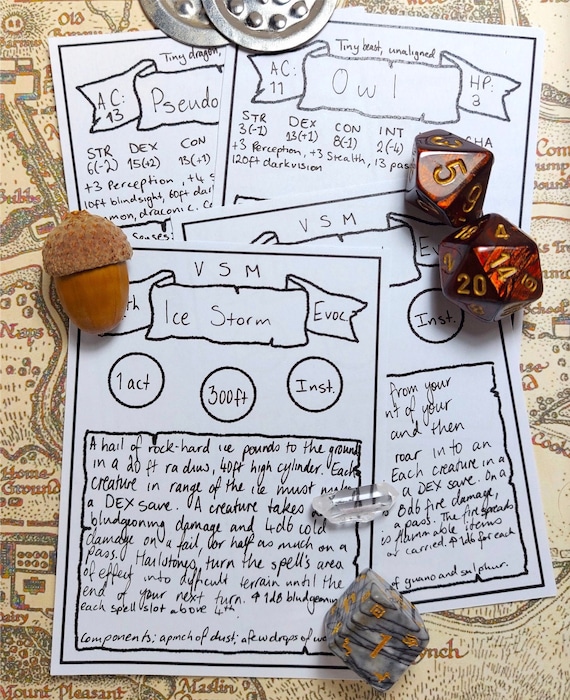 Tiny dragon,
AC:
13
Pseudo
STR DEX CON
6(-2) 15(+2) 13(+1)
+3 Perception, +4 s
10ft blindsight, 60ft dar
mmon, draconic. Ca
Senses:
Tiny beast, unaligned
AC:
11
Owl
HP:
3
STR DEX CON INT CHA
3(-1) 13(+1) 8(-1) 2(-4)
+3 Perception, +3 Stealth, 13 pas
120ft darkvision
V S M
Ev
Inst.
from your
nt of your
and then
roar in to an
Each creature in a
a DEX save. On a
8d6 fire damage,
a pass. The fire spreads
is flammable items
or carried. ↑ 1d6 for each
of guano and sulphur.
V S M
th
Ice Storm
Evoc.
1 act
300ft
Inst.
A hail of rock-hard ice pounds to the ground
in a 20ft radius, 40ft high cylinder. Each
creature in range of the ice must make
a DEX save. A creature takes
bludgeoning damage and 4d6 cold
damage on a fail, or half as much on a
pass. Hailstones turn the spell's area
of effect into difficult terrain until the
end of your next turn. ↑ 1d8 bludgeoning
each spell slot above 4th.
Components: a pinch of dust; a few drops of wa
5
9
4
14
20
Naps
Home
Ground
Mount Pleasant
Maslin
Combe
Cooks
nch